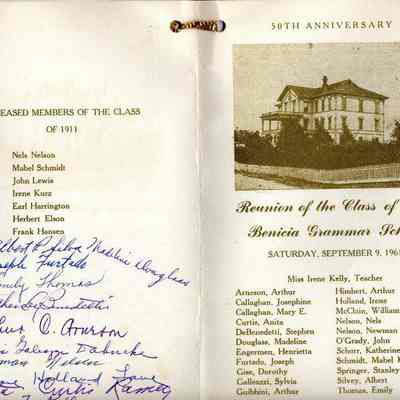 EASED MEMBERS OF THE CLASS
OF 1911
Nels Nelson
Mabel Schmidt
John Lewis
Irene Kurz
Earl Harrington
Herbert Elson
Frank Hansen
Albert P. Silva Madeline Douglass
Joseph Furtado
Emily Thomas
Holland Lane
Curtis Ramsey
50TH ANNIVERSARY
Reunion of the Class of
Benicia Grammar Sch
SATURDAY, SEPTEMBER 9, 196
Miss Irene Kelly, Teacher
Arneson, Arthur
Callaghan, Josephine
Callaghan, Mary E.
Curtis, Anita
DeBenedetti, Stephen
Douglass, Madeline
Engermen, Henrietta
Furtado, Joseph
Gise, Dorothy
Galleazzi, Sylvia
Guibbini, Arthur
Himbert, Arthur
Holland, Irene
McCluin, William
Nelson, Nels
Nelson, Newman
O'Grady, John
Schorr, Katherine
Schmidt, Mabel
Springer, Stanley
Silvey, Albert
Thomas, Emily